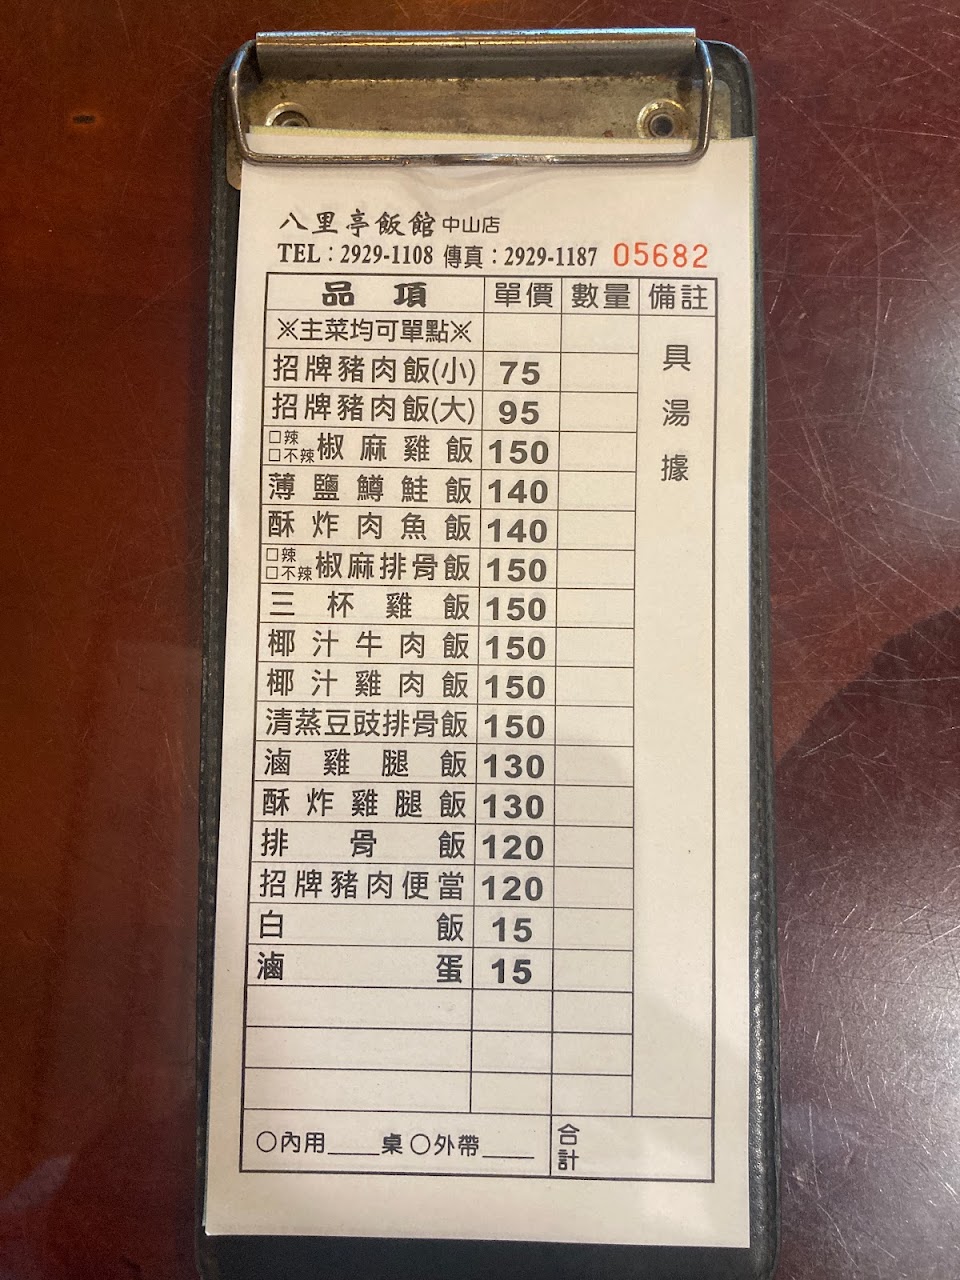 八里亭飯館 中山店
TEL：2929-1108 傳真：2929-1187 05682
品項 單價 數量 備註
※主菜均可單點※
招牌豬肉飯(小) 75
招牌豬肉飯(大) 95
□辣 □不辣 椒麻雞飯 150
薄鹽鱒鮭飯 140
酥炸肉魚飯 140
□辣 □不辣 椒麻排骨飯 150
三杯雞飯 150
椰汁牛肉飯 150
椰汁雞肉飯 150
清蒸豆豉排骨飯 150
滷雞腿飯 130
酥炸雞腿飯 130
排骨飯 120
招牌豬肉便當 120
白飯 15
滷蛋 15
具湯據
○內用____桌 ○外帶____ 合計